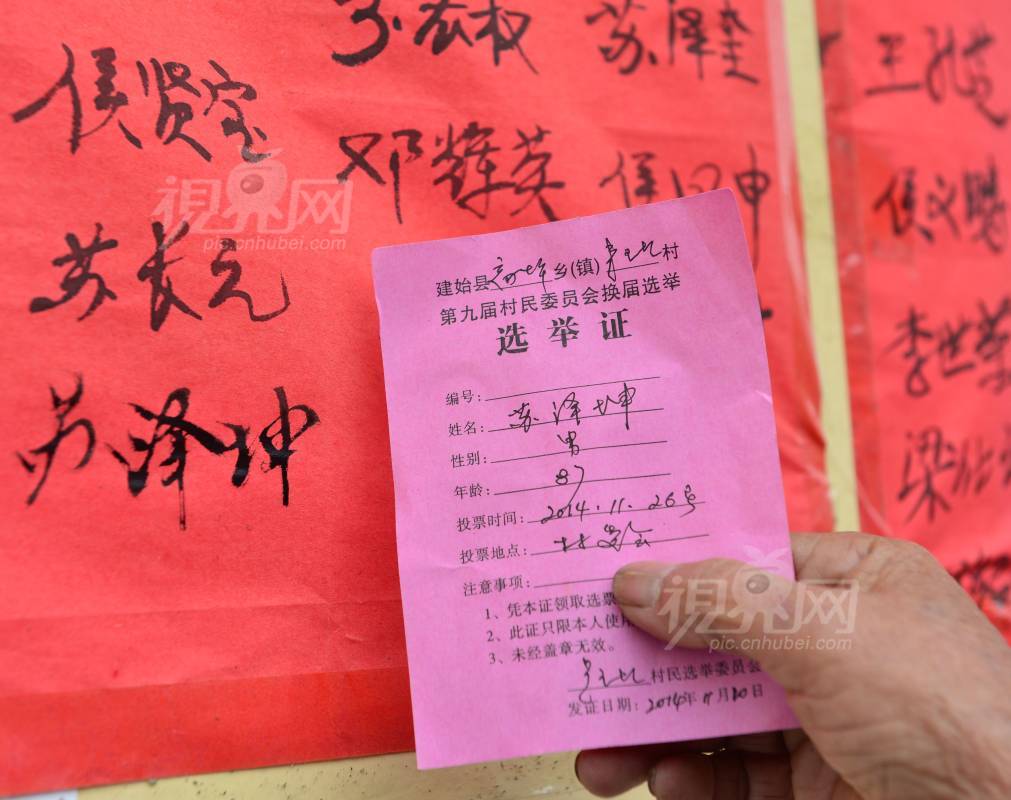 侯贤宝
苏长元
苏泽坤
苏泽奎
邓辉英
侯
坤
王
侯义鹏
李世荣
梁
建始县 乡(镇) 村
第九届村民委员会换届选举
选举证
编号:
姓名: 苏泽坤
性别: 男
年龄: 87
投票时间: 2014.11.26号
投票地点: 村委会
注意事项:
1、凭本证领取选票
2、此证只限本人使用
3、未经盖章无效。
村民选举委员会
发证日期: 2014年11月20日
視界网
pic.cnhubei.com
視界网
pic.cnhubei.com